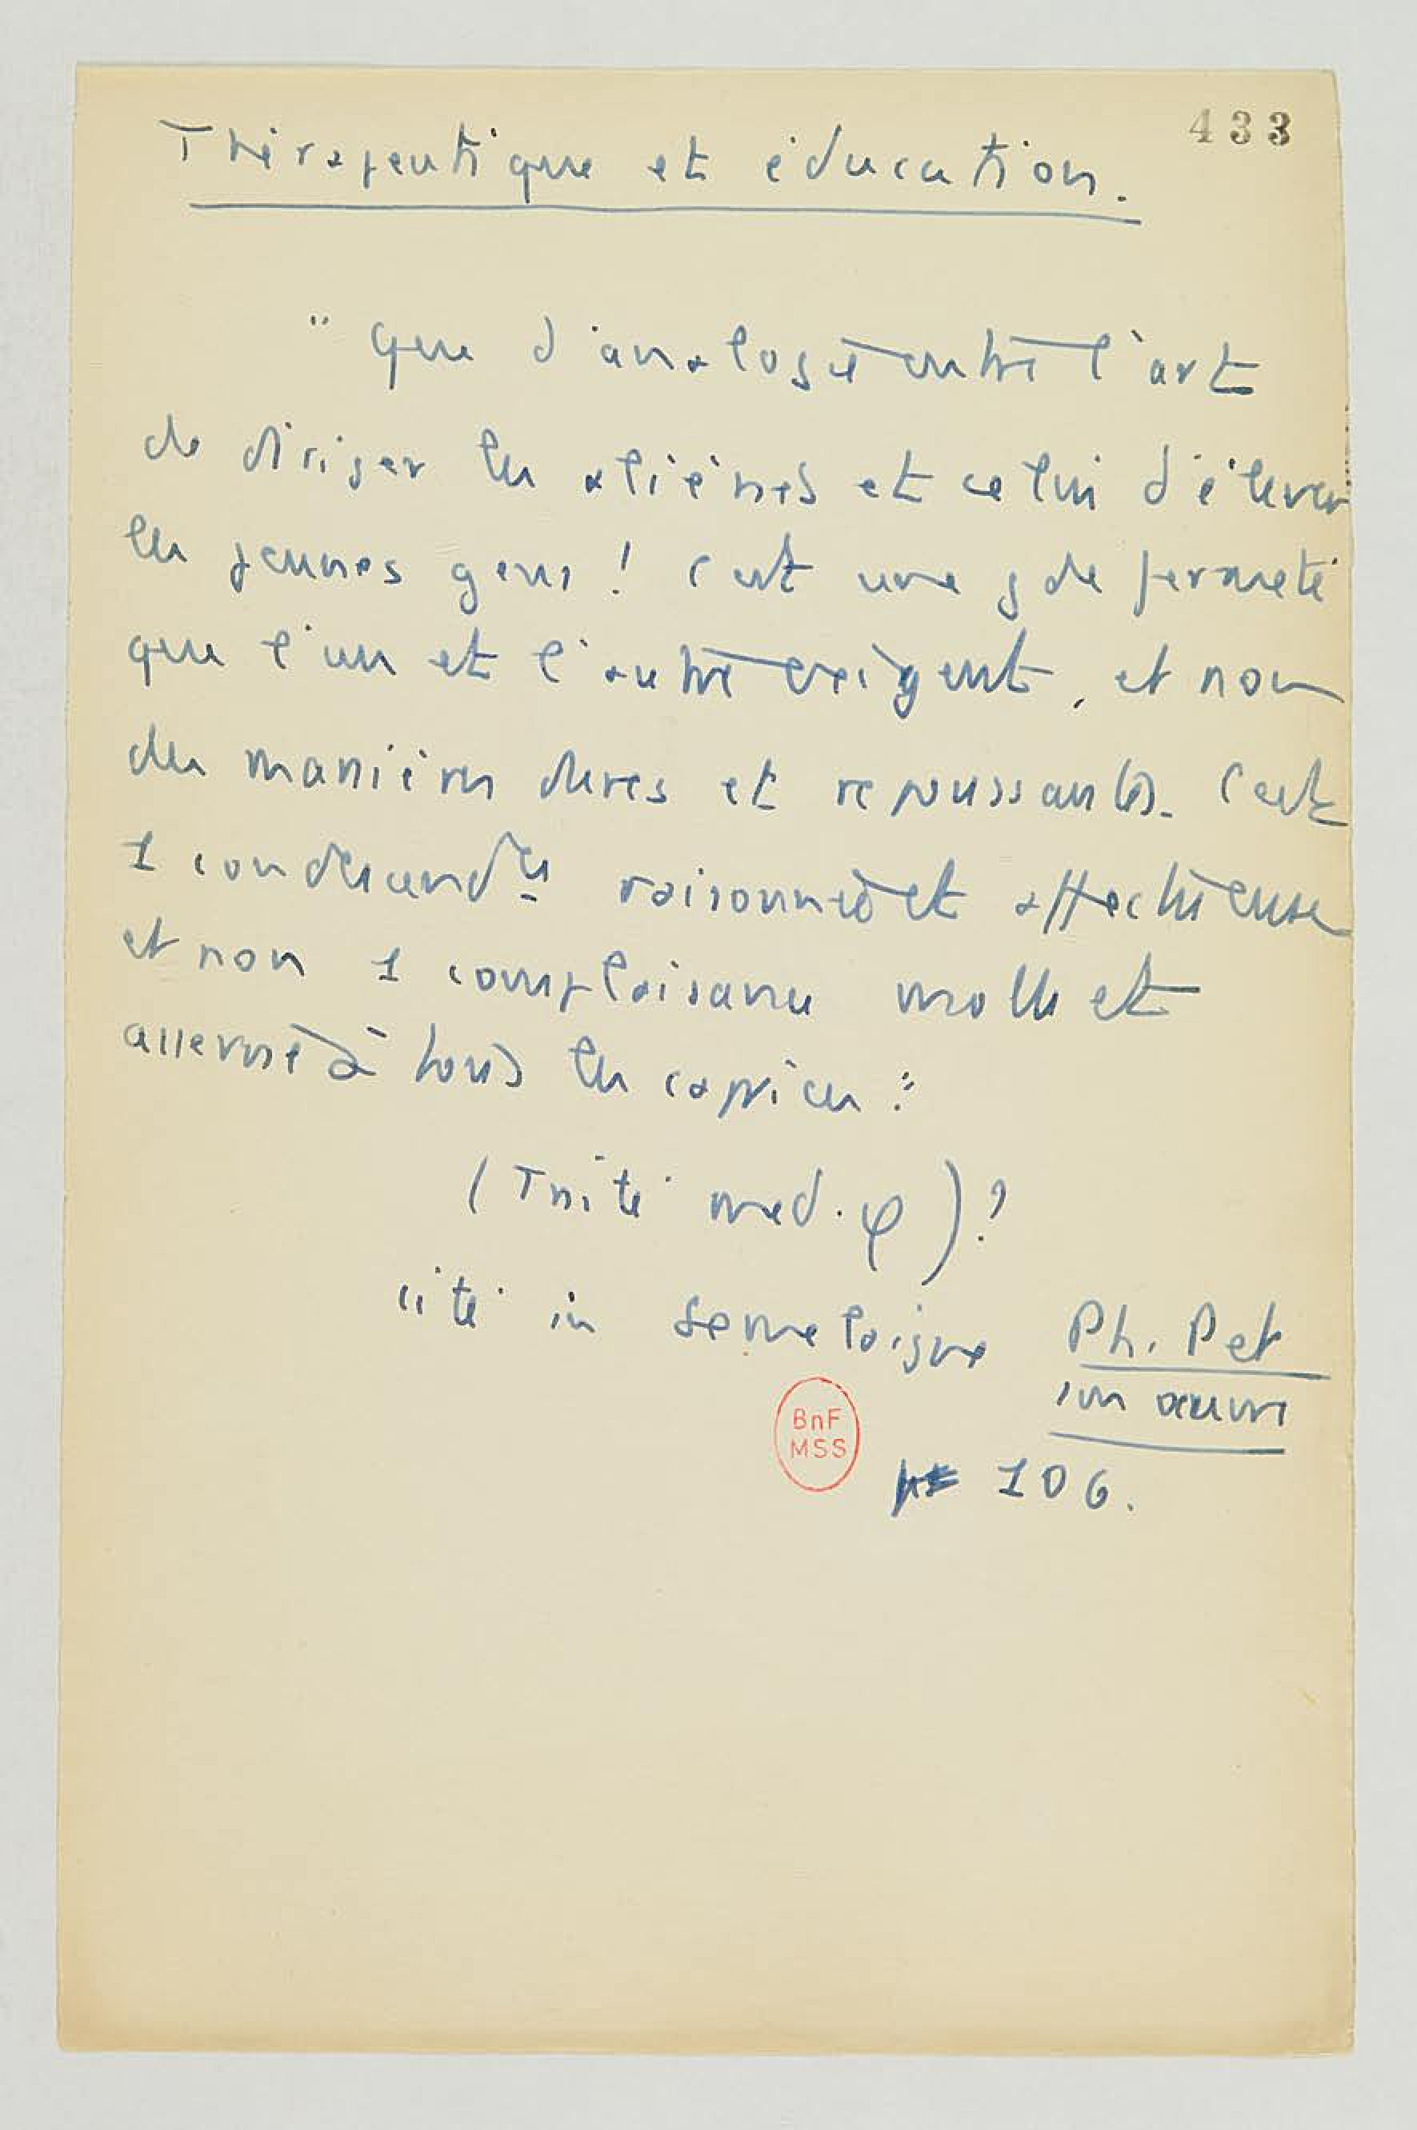 433
Thérapeutique et éducation.
" Que d'analogie entre l'art
de diriger les aliénés et celui d'élever
les jeunes gens ! C'est une gde fermeté
que l'un et l'autre exigent, et non
des manières dures et repoussantes. C'est
1 condescendce raisonnée et affectueuse
et non 1 complaisance molle et
asservie à tous les caprices."
(Traité med. φ) ?
cité in Semelaigne Ph. P et
son œuvre
BnF
MSS
106.